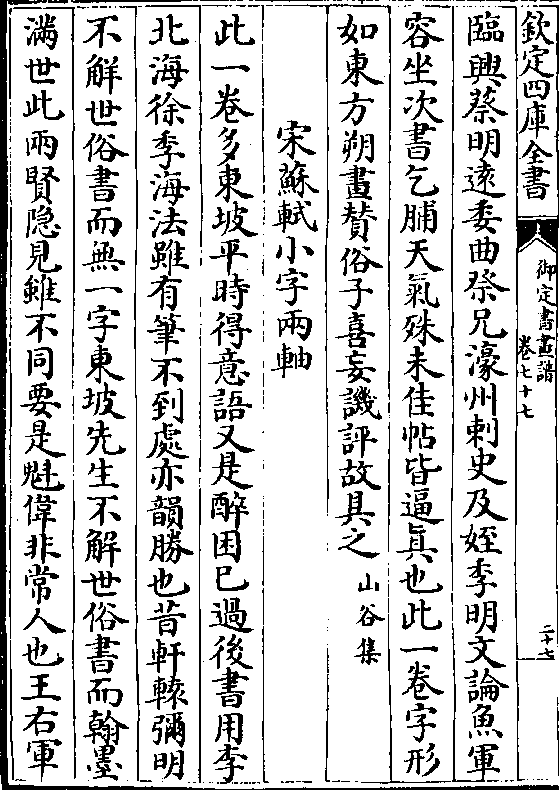 欽定四庫全書
御定書畫譜
卷七十七
二十七
臨與蔡明遠委曲祭兄濠州刺史及姪季明文論魚軍
容坐次書乞脯天氣殊未佳帖皆逼真也此一卷字形
如東方朔畫贊俗子喜妄譏評故具之 山谷集
宋蘇軾小字兩軸
此一卷多東坡平時得意語又是醉困已過後書用李
北海徐季海法雖有筆不到處亦韻勝也昔軒轅彌明
不解世俗書而無一字東坡先生不解世俗書而翰墨
滿世此兩賢隐見雖不同要是魁偉非常人也王右軍